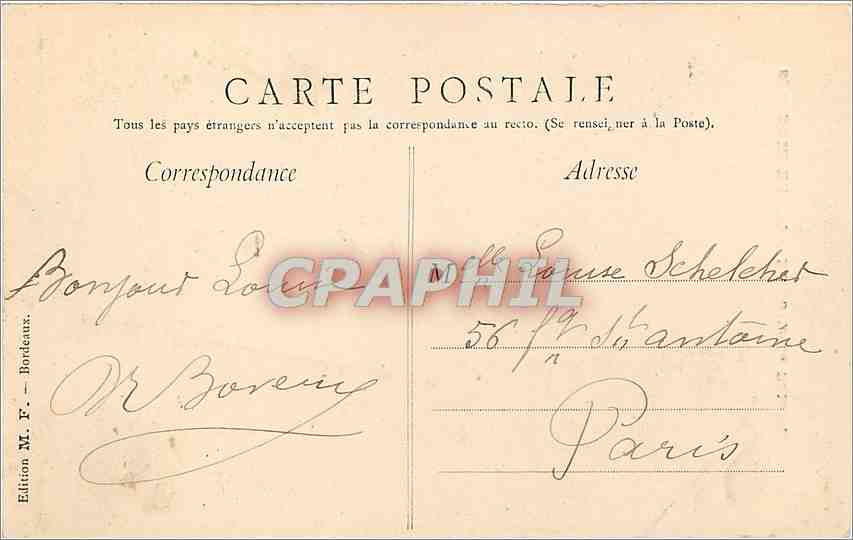 CARTE POSTALE
Tous les pays étrangers n'acceptent pas la correspondance au recto. (Se renseigner à la Poste).
Correspondance
Adresse
Bonjour Louise
Edition M. F. — Bordeaux.
Melle Louise Schelcher
56 fg St antoine
Paris
CPAPHIL